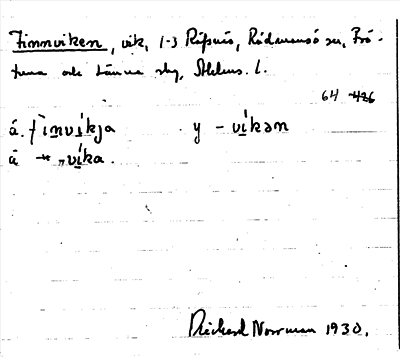 Finnviken, vik, 1-3 Räfsnäs, Rådmansö sn, Frö-
tuna och Länna skg, Sthlms. l.
64 426
á. finvikja y - vikən
ä → „vika.
Rickard Norrman 1930.